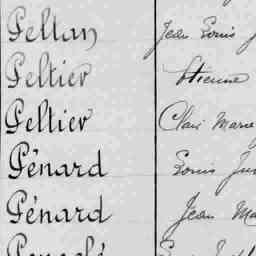 Peltan Jean Louis J
Peltier Etienne
Peltier Clair Marie
Pénard Louis Jus
Pénard Jean Ma